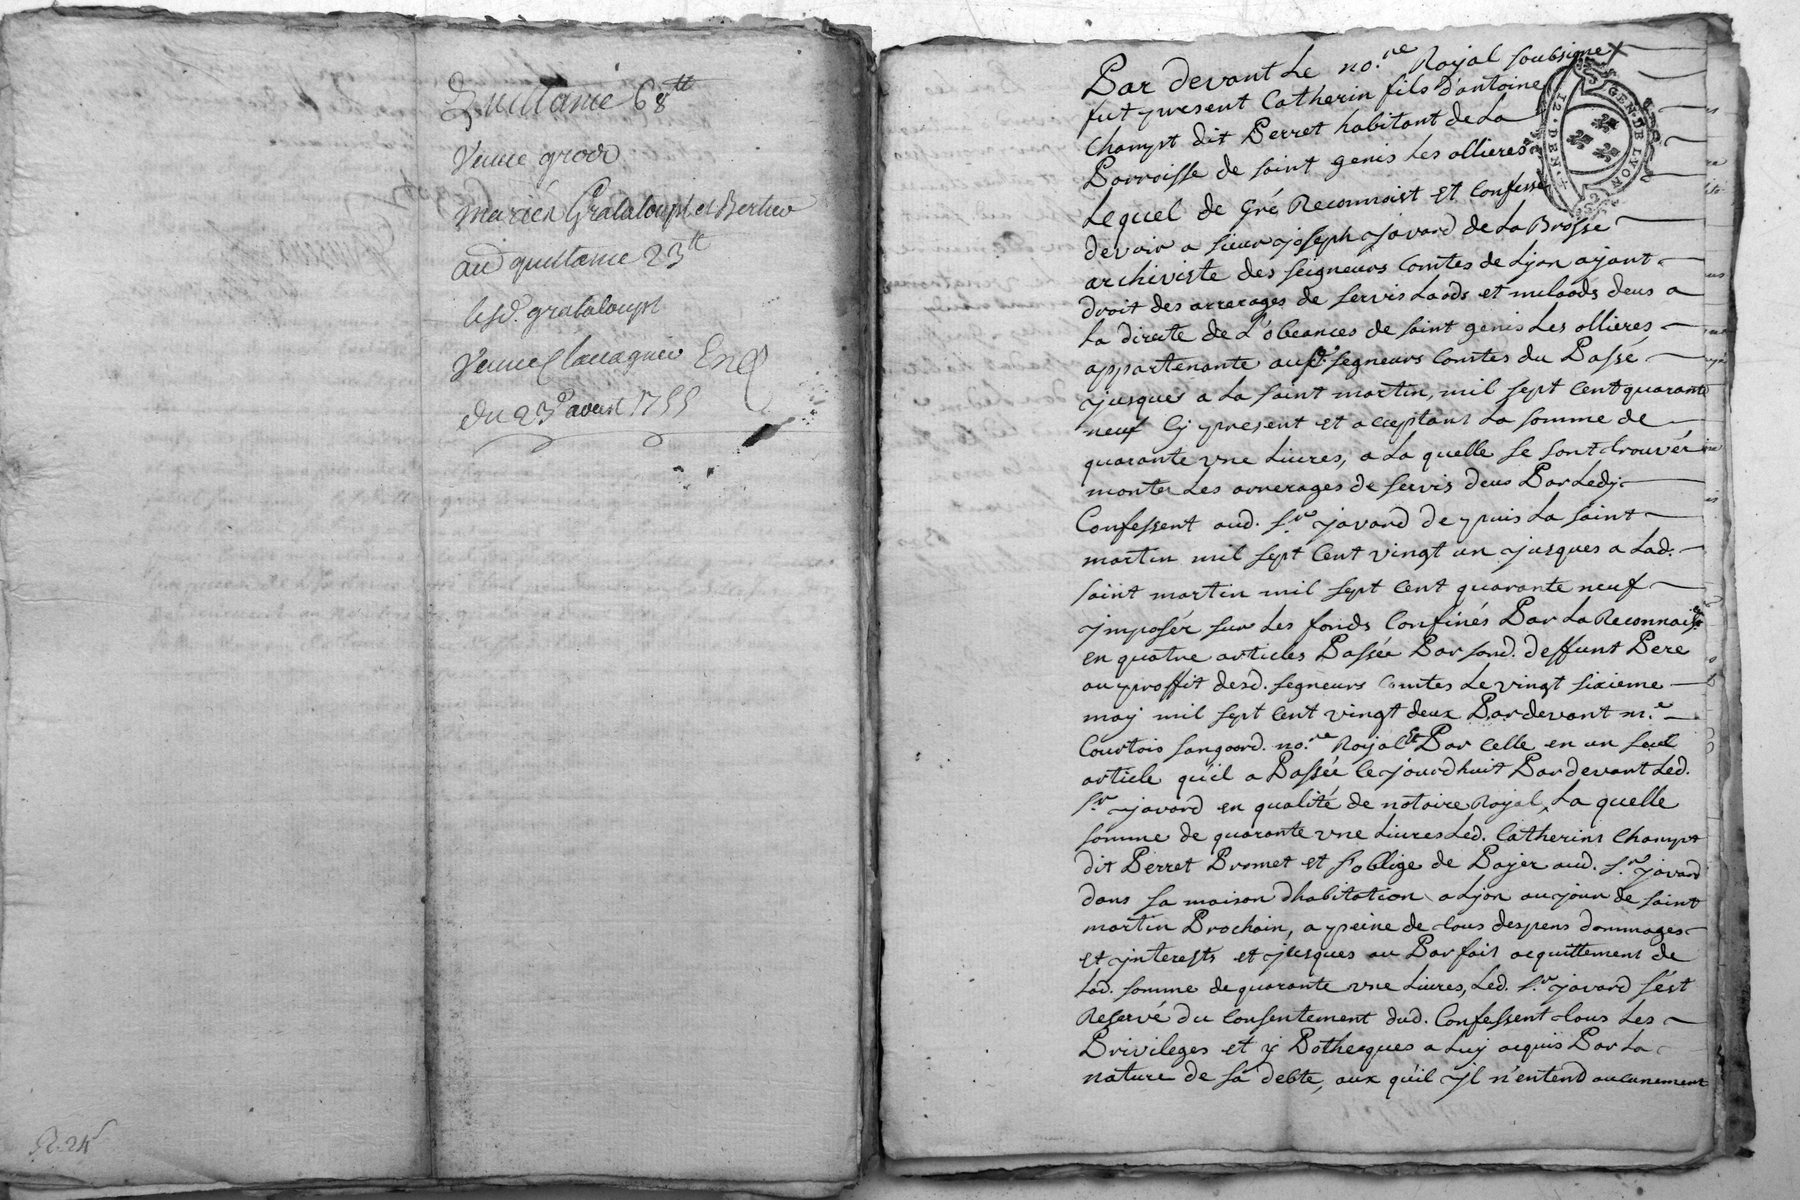 Quittance 68tt
Veuve grod
mariés Grataloup et Bertier
aud quittance 23tt
led. grataloup
Veuve
du 23e avril 1755
R. 24s
GEN. DE LYON
12. DEN.
Par devant Le no.re Royal soubsigne
fut present Catherin fils D'antoine
Champt dit Perret habitant de La
Parroisse de saint genis Les ollieres
Lequel de Gré Reconnoist et Confesse
devoir a sieur joseph Javard de La Brosse
archiviste des seigneurs Comtes de Lyon ajant
droit des arrerages de servis Laods et milaods deus a
La directe de L'obeances de saint genis Les ollieres
appartenante ausd. segneurs Comtes du Passé
jusques a La saint martin, mil sept Cent quarante
neuf Cy present et acceptant La somme de
quarante vne Livres, a La quelle se sont trouvér
monter Les arrerages de servis deus Par Ledy
Confessent aud. S.r javard depuis La saint
martin mil sept Cent vingt un jusques a Lad.
saint martin mil sept Cent quarante neuf
jmposér sur Les fonds Confinés Par La Reconnaiss
en quatre articles Passée Par sond. deffunt Pere
au proffit desd. segneurs Comtes Le vingt sixieme
maj mil sept Cent vingt deux Pardevant m.e
Courtois no.re Royal Et Par Celle en un seul
article qu'il a Passée Cejourdhuit Pardevant Led.
S.r javard en qualité de notaire Royal, La quelle
somme de quarante vne Livres Led. Catherins Champt
dit Perret Promet et s'oblige de Pajer aud. S.r javard
dans sa maison dhabitation a Lyon au jour de saint
martin Prochain, a peine de tous despens dommages
et jnterests et jusques au Parfait acquittement de
Lad. somme de quarante vne Livres, Led. S.r javard s'est
Reservé du Consentement dud. Confessent tous Les
Privileges et y Pothecques a Luy acquis Par La
nature de sa debte, aux quil yl n'entend aucunement